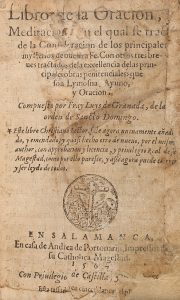 Libro de la Oracion,
Meditacion: en el qual se trata
de la Consideracion de los principales
mysterios de nuestra Fe. Con otros tres bre-
ues tractados de la excelencia de las prin-
cipales obras penitenciales que
son Lymosna, Ayuno,
y Oracion.
Compuesto por Fray Luys de Granada, de la
orden de Sancto Domingo.
Este libro Christiano lector, sale agora nueuamente añadi-
do, y emendado y quasi hecho otro de nueuo, por el mismo
author, con approbacion y licencia, y priuilegio Real de su
Magestad, como por ello paresce, y assi agora puede
y ser leydo de todos.
EN SALAMANCA,
En casa de Andrea de Portonarijs, Impressor de
su Catholica Magestad.
Con Priuilegio de Castilla,
Esta tassado